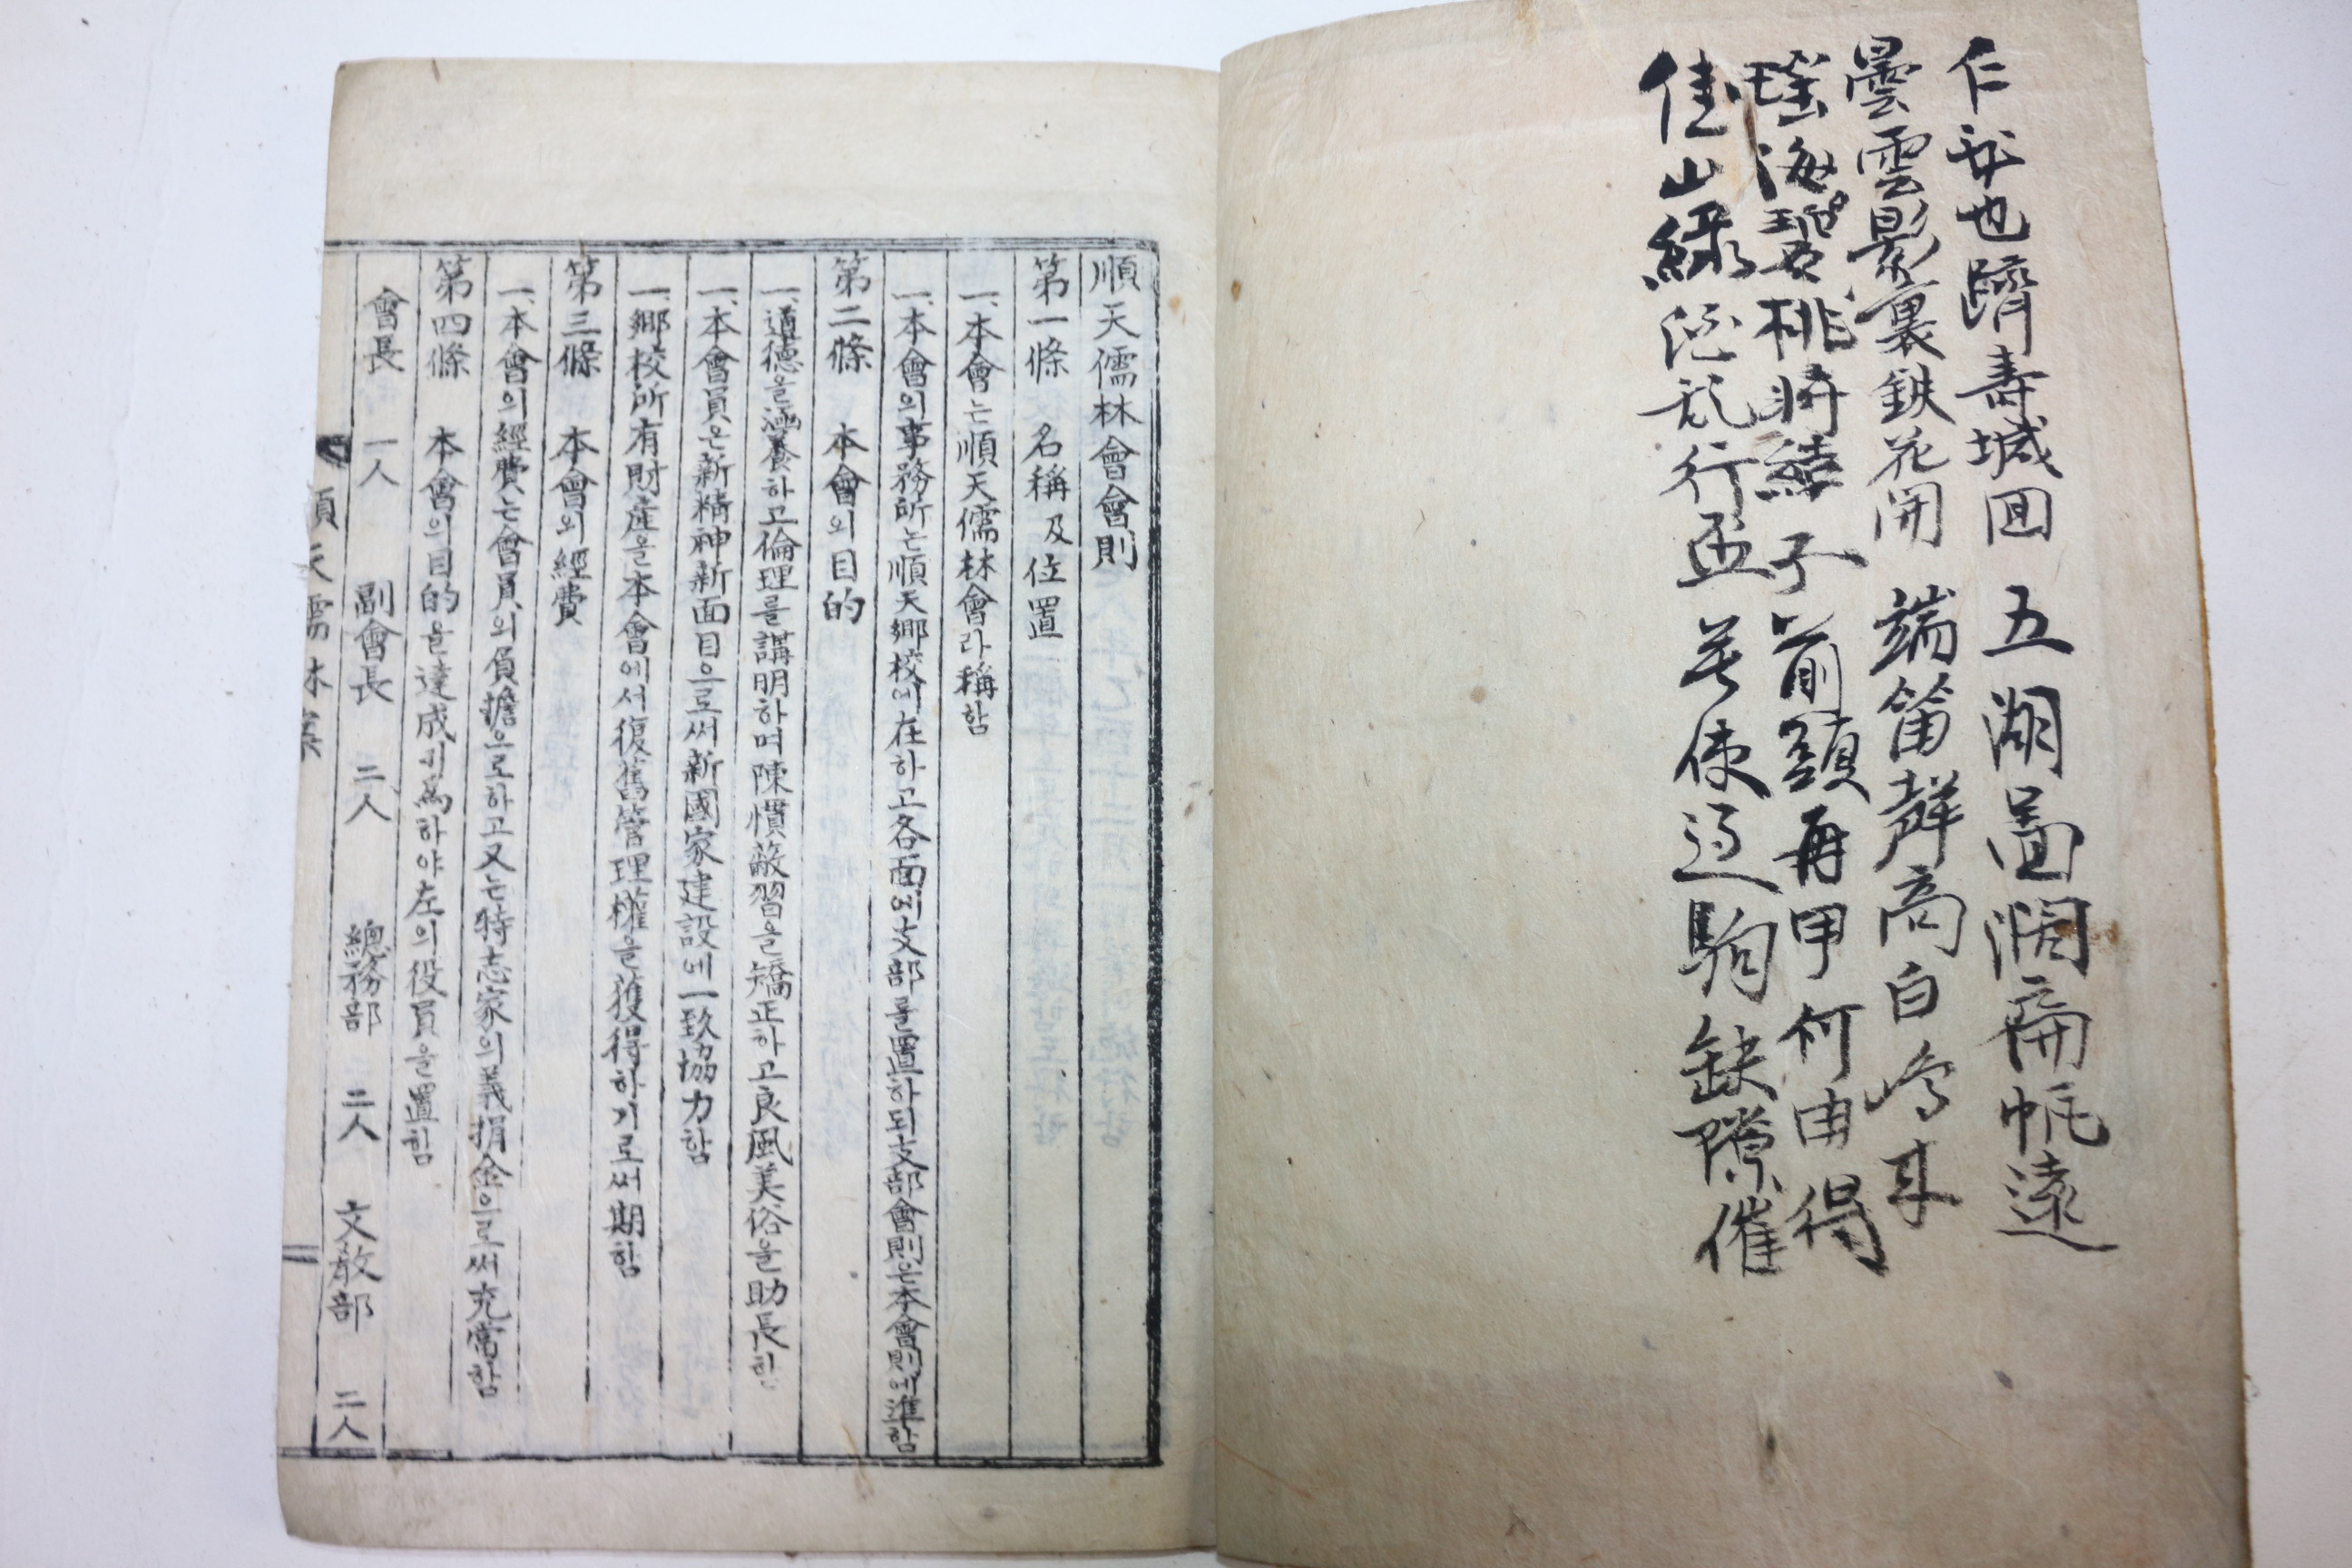 仁 也躋壽域回 五湖 闊 帆遠
曇雲影裏鉄花開 端笛聲高白
瑤海 碧桃將結子 前頭再甲何由得
佳山綠 行盃 莫使 駒 隙催
順天儒林會會則
第一條 名稱及位置
一、本會는順天儒林會라稱함
一、本會의事務所는順天鄕校에在하고各面에支部를置하되支部會則은本會則에準함
第二條 本會의目的
一、道德을涵養하고倫理를講明하며陳慣蔽習을矯正하고良風美俗을助長함
一、本會員은新精神新面目으로써新國家建設에一致協力함
一、鄕校所有財産을本會에서復舊管理權을獲得하기로써期함
第三條 本會의經費
一、本會의經費는會員의負擔으로하고又는特志家의義捐金으로써充當함
第四條 本會의目的을達成키爲하야左의役員을置함
會長 一人 副會長 二人 總務部 二人 文敎部 二人
順天儒林案